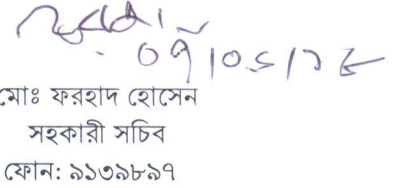 ০৭/০৮/১৮
মোঃ ফরহাদ হোসেন
সহকারী সচিব
ফোন: ৯১৩৯৮৯৭